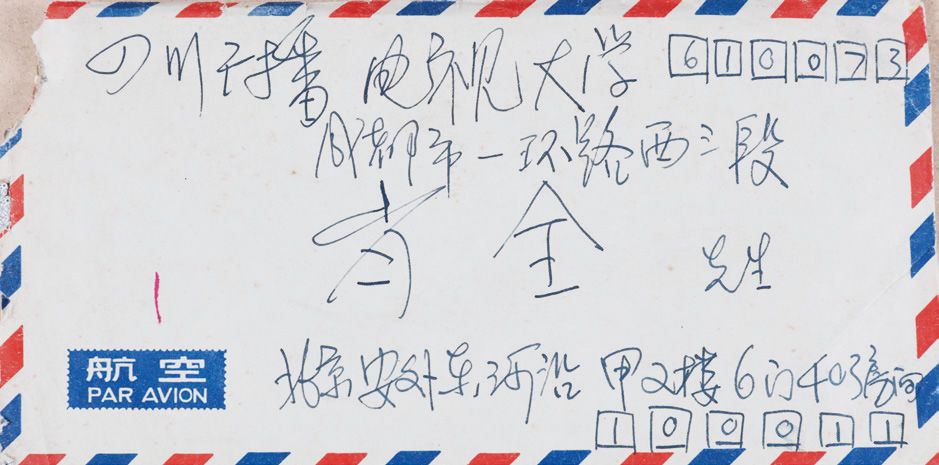 四川广播电视大学 610073
成都市一环路西三段
肖全 先生
航空
PAR AVION
北京安外东河沿 甲2楼6门403房间
100011